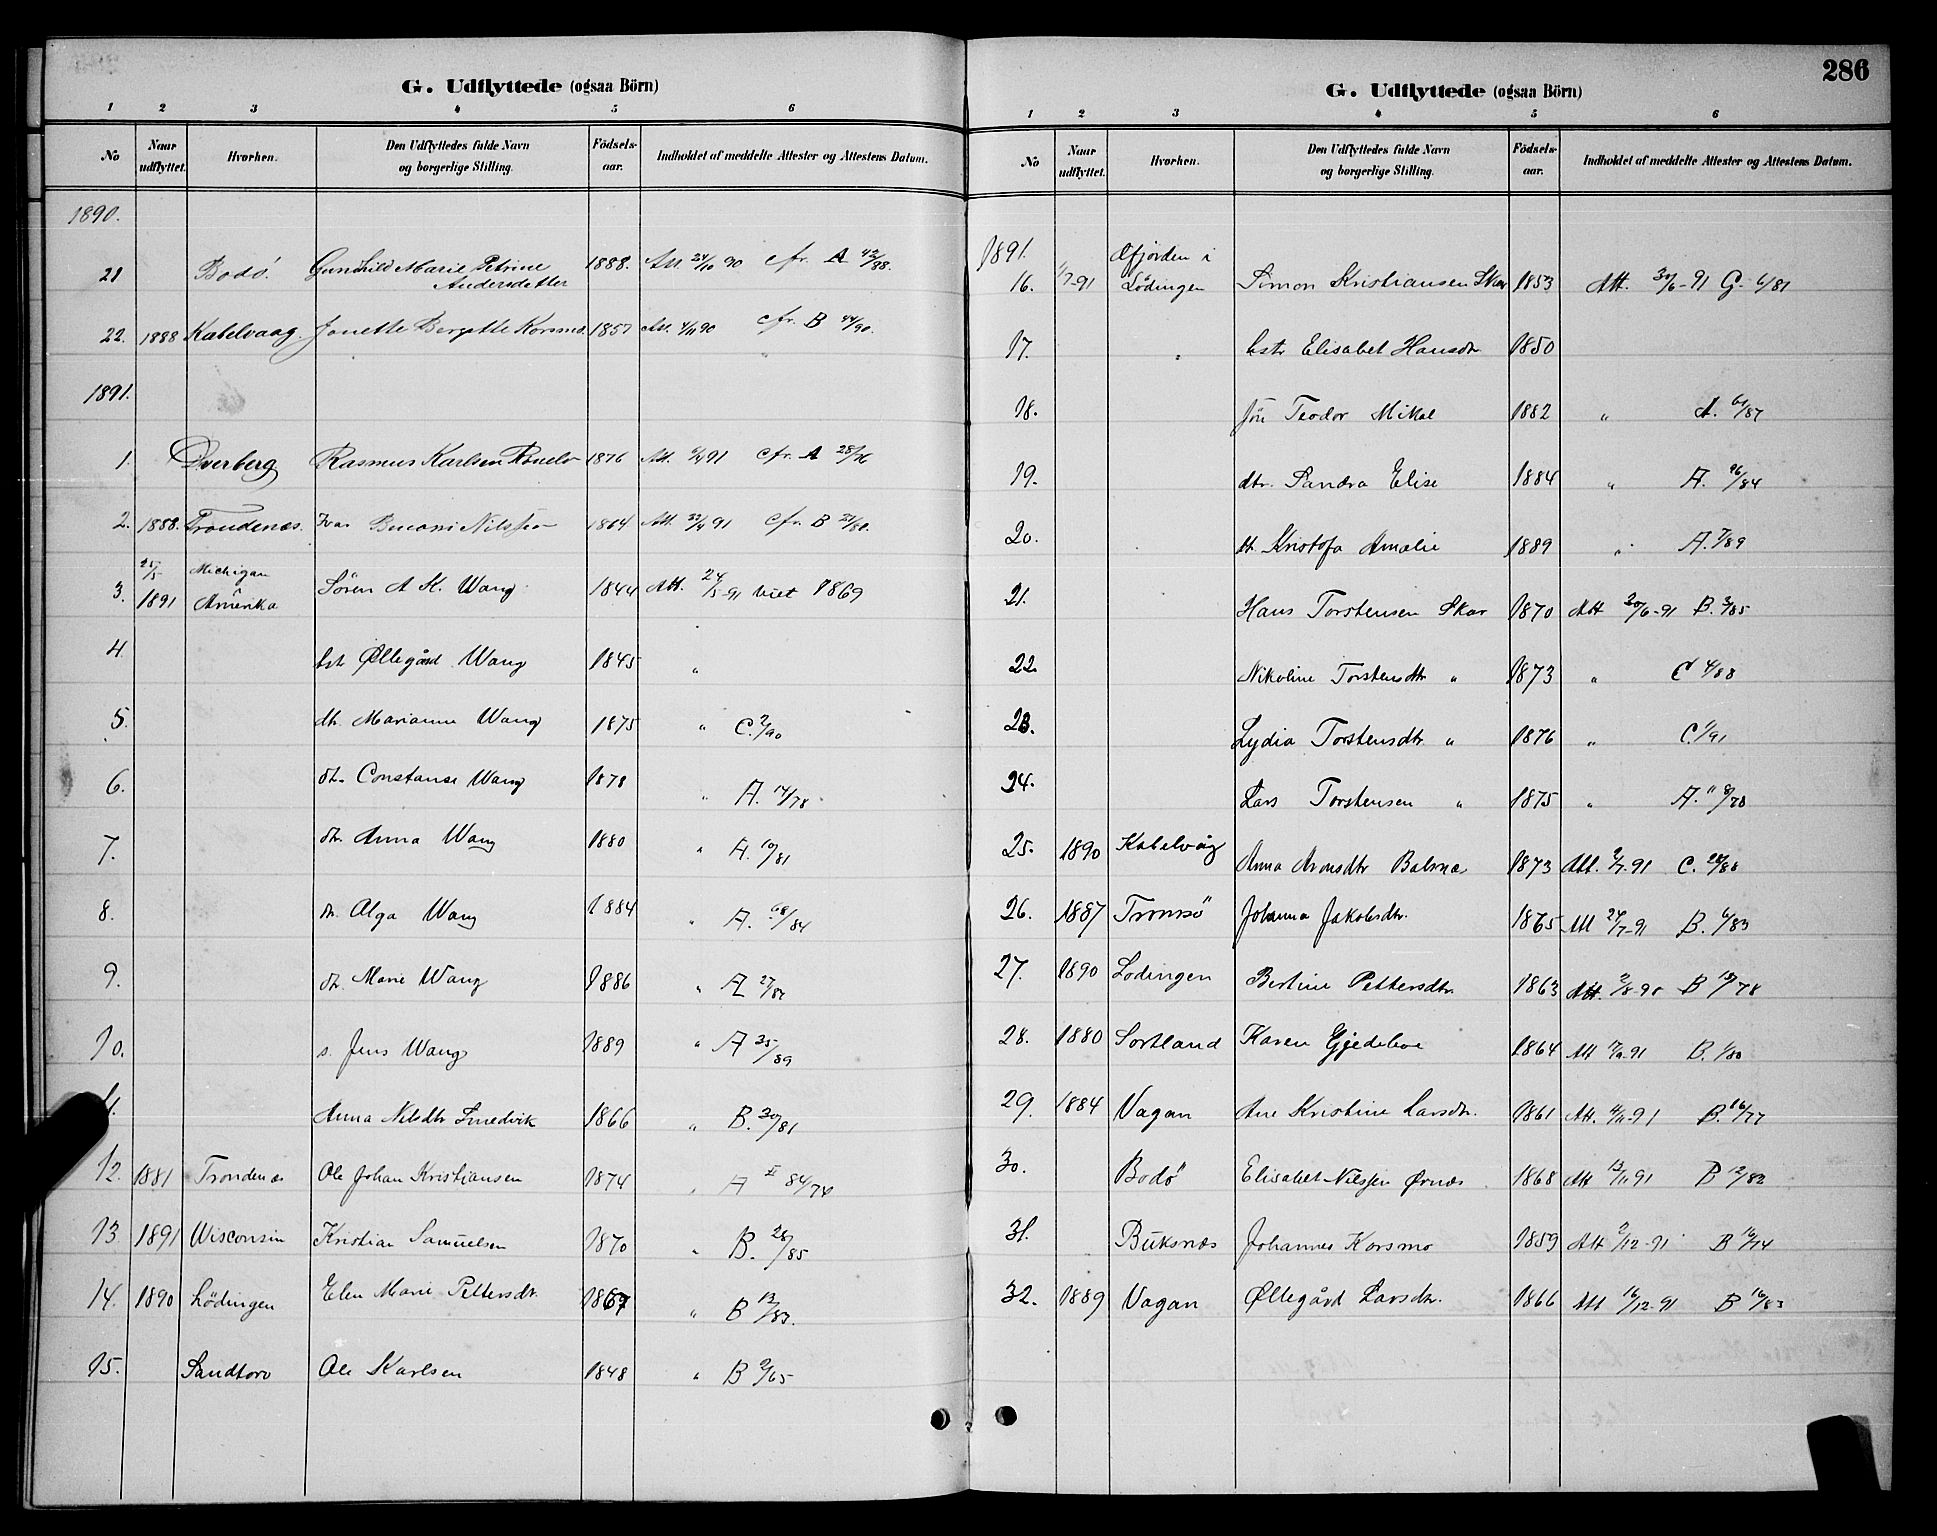 G. Udflyttede (ogsaa Börn)
1 2 3 4 5 6
No Naar udflyttet. Hvorhen. Den Udflyttedes fulde Navn og borgerlige Stilling. Födsels-aar. Indholdet af meddelte Attester og Attestens Datum.
1890.
21 Bodö. Gunhild Marie Petrine Andersdatter 1888. Att. 24/10 90 cfr. A 42/88.
22. 1888 Kabelvaag. Jonette Bergitte Korsmo. 1857 Att. 4/11 90 cfr. B 44/90.
1891.
1. Dverberg Rasmus Karlsen 1876 Att. 91 cfr. A 28/76
2. 1888. Trondenæs. Ivar Nilssen 1864 Att. 91 cfr. B 21/80.
3. 25/5 1891 Michigan Amerika Sören A K. Wang 1844 Att. 24/5-91 viet 1869
4. hst Øllegård Wang 1845 "
5. dtr. Marianne Wang 1875 " C. 2/90
6. dtr. Constanse Wang 1878 " A. 14/78.
7. dtr. Anna Wang 1880 " A. 10/81
8. dtr. Alga Wang 1884 " A. 68/84
9. dtr. Marie Wang 1886 " A 27/87
10. s. Jens Wang 1889 " A 35/89
11. Anna Nilsdtr Smedvik 1866 " B. 30/81
12. 1881 Trondenæs Ole Johan Kristiansen 1874 " A II 84/74
13 1891 Wisconsin Kristian Samuelsen 1870 " B. 28/85
14. 1890 Lödingen Elen Marie Pettersdtr. 1867 " B 13/83.
15. Sandtorv Ole Karlsen 1848 " B 9/65
286
G. Udflyttede (ogsaa Börn)
1 2 3 4 5 6
No Naar udflyttet. Hvorhen. Den Udflyttedes fulde Navn og borgerlige Stilling. Födsels-aar. Indholdet af meddelte Attester og Attestens Datum.
1891.
16. 1/7-91 Øfjorden i Lödingen Simon Kristiansen Skar 1853 Att. 30/6-91 G. 6/81
17. " hstr Elisabet Hansdtr 1850
18. Jön Teodor Mikal 1882 " A. 61/87
19. dtr. Sandra Elise 1884 " A. 96/84
20. dt. Kristofa Amalie 1889 " A. 7/89
21. Hans Torstensen Skar 1870 Att 30/6-91 B. 3/85
22. Nikoline Torstensdtr " 1873 " C 4/88
23. Lydia Torstensdtr " 1876 " C. 1/91
24. Lars Torstensen " 1875 " A. II 8/78
25. 1890 Kabelvåg Anna Aronsdtr 1873 Att. 2/7-91 C. 28/88
26. 1887 Tromsö Johanna Jakobsdtr. 1865 Att 24/7-91 B. 6/83
27. 1890 Lodingen Bertine Pettersdtr. 1863 Att. 2/8-90 B 13/78
28. 1880 Sortland Karen Gjedeleve 1864 Att 91 B. 1/80
29. 1884 Vagan Ane Kristine Larsdtr. 1861 Att. 4/11-91 B. 16/77
30. Bodö Elisabet Nilssen Ørnes 1868 Att 13/11 91 B 12/82
31. Buksnæs Johannes Korsmo 1859 Att 9/12-91 B 16/74
32. 1889 Vagan Øllegård Larsdtr. 1866 Att 16/12-91 B 16/83